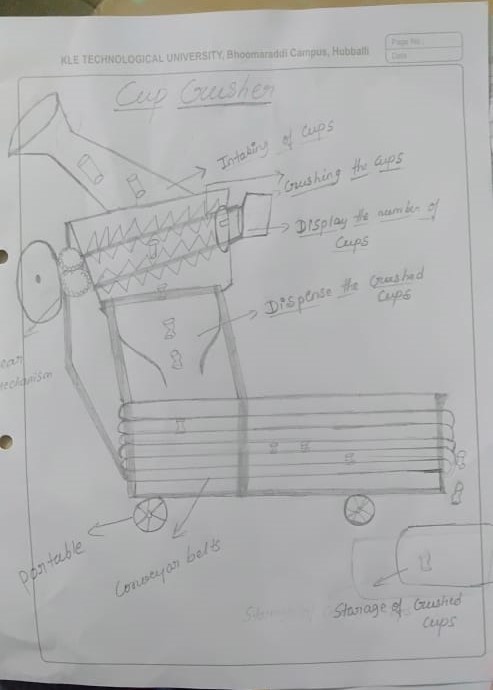 KLE TECHNOLOGICAL UNIVERSITY, Bhoomaraddi Campus, Hubballi
Page No.:
Date
Cup Crusher
Intaking of cups
Crushing the cups
Display the number of
cups
Dispense the crushed
cups
ear
echanism
Portable
Conveyar belts
Starage of Crushed
cups